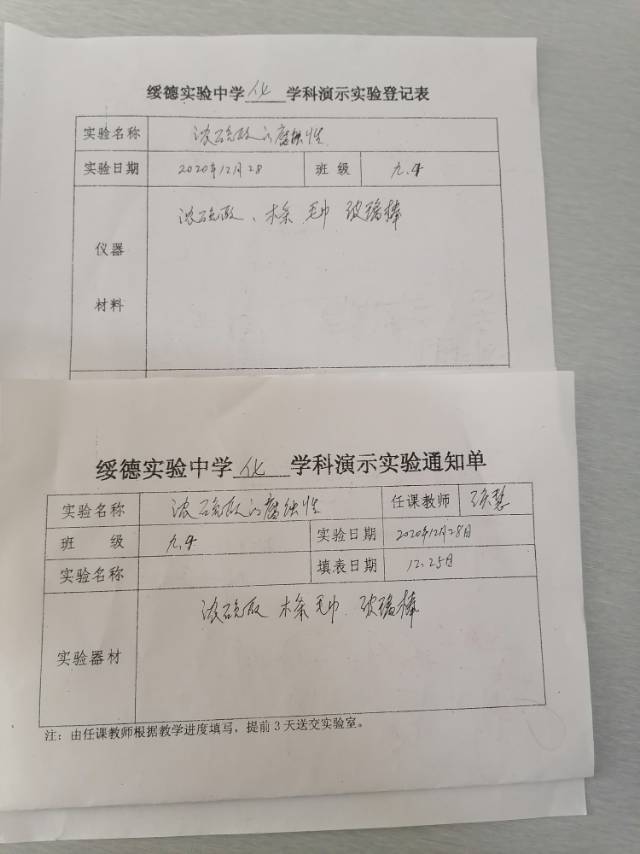 绥德实验中学 化 学科演示实验登记表
实验名称 浓硫酸的腐蚀性
实验日期 2020年12月28 班 级 九.4
仪器
材料
浓硫酸、木条 毛巾 玻璃棒
绥德实验中学 化 学科演示实验通知单
实验名称 浓硫酸的腐蚀性 任课教师
班 级 九.4 实验日期 2020年12月28日
实验名称 填表日期 12.25日
实验器材 浓硫酸 木条 毛巾 玻璃棒
注：由任课教师根据教学进度填写，提前3天送交实验室。